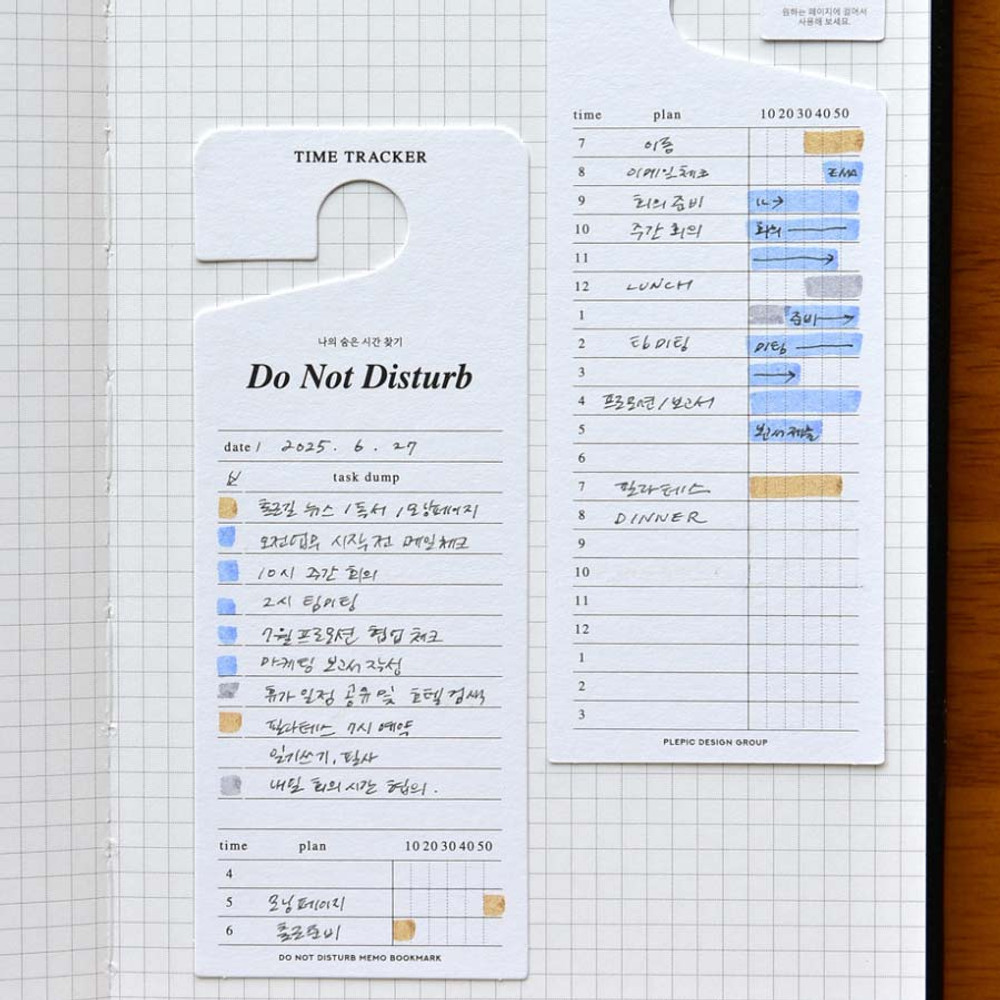 TIME TRACKER
나의 숨은 시간 찾기
Do Not Disturb
date / 2025. 6. 27
task dump
출근길 뉴스 / 독서 / 모닝페이지
오전업무 시작 전 메일체크
10시 주간 회의
2시 팀미팅
7월 프로모션 협업 체크
마케팅 보고서 작성
휴가 일정 공유 및 호텔 검색
필라테스 7시 예약
일기쓰기, 필사
내일 회의 시간 협의.
time plan 10 20 30 40 50
4
5 모닝페이지
6 출근준비
DO NOT DISTURB MEMO BOOKMARK
원하는 페이지에 걸어서
사용해 보세요.
time plan 10 20 30 40 50
7 이동
8 이메일체크 EMA
9 회의 준비
10 주간 회의 회의
11
12 LUNCH
1 준비
2 팀미팅 미팅
3
4 프로모션 / 보고서
5 보고서 제출
6
7 필라테스
8 DINNER
9
10
11
12
1
2
3
PLEPIC DESIGN GROUP